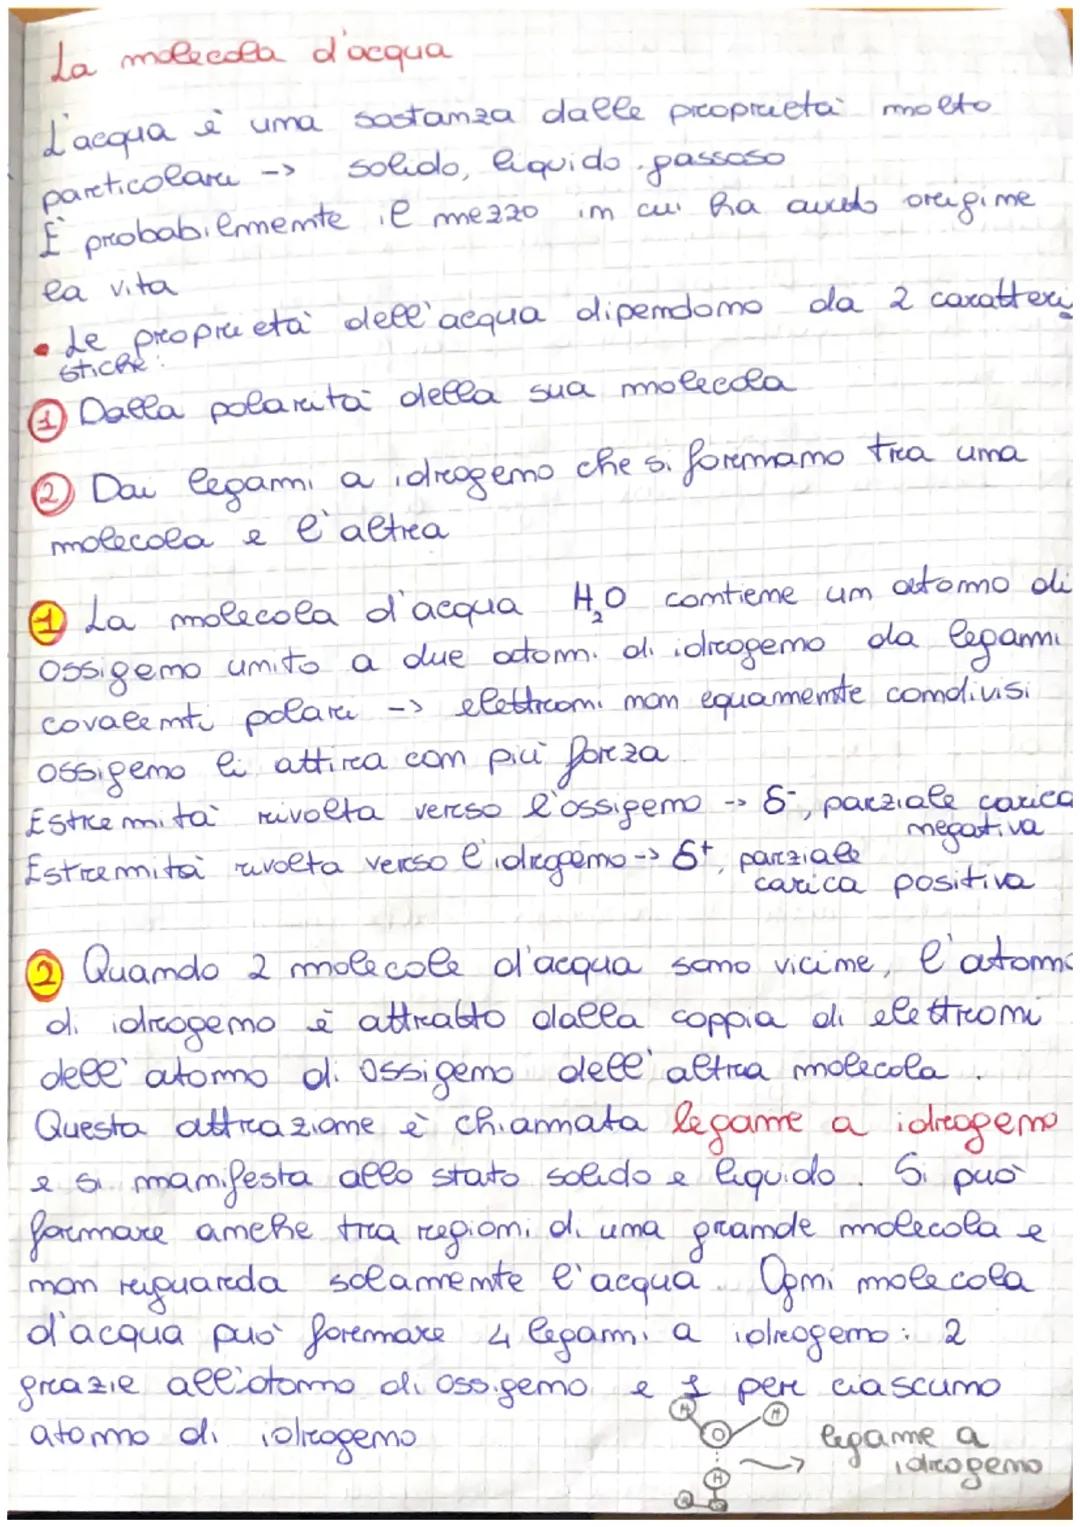 La molecola d'acqua
L'acqua è una sostanza dalle proprietà molto
particolari -> solido, liquido, gassoso
È probabilmente il mezzo in cui ha avuto origine
la vita
• Le proprietà dell'acqua dipendono da 2 caratteri
stiche:
1 Dalla polarità della sua molecola
2 Dai legami a idrogeno che si formano tra una
molecola e l'altra
1 La molecola d'acqua H₂O contiene un atomo di
ossigeno unito a due atomi di idrogeno da legami
covalenti polari -> elettroni non equamente condivisi
ossigeno li attira con più forza
Estremità rivolta verso l'ossigeno -> δ⁻, parziale carica
negativa
Estremità rivolta verso l'idrogeno -> δ⁺, parziale
carica positiva
2 Quando 2 molecole d'acqua sono vicine, l'atomo
di idrogeno è attratto dalla coppia di elettroni
dell'atomo di ossigeno dell'altra molecola.
Questa attrazione è chiamata legame a idrogeno
e si manifesta allo stato solido e liquido. Si può
formare anche tra regioni di una grande molecola e
non riguarda solamente l'acqua. Ogni molecola
d'acqua può formare 4 legami a idrogeno: 2
grazie all'atomo di ossigeno e 1 per ciascuno
atomo di idrogeno
H H
O
H
legame a
idrogeno